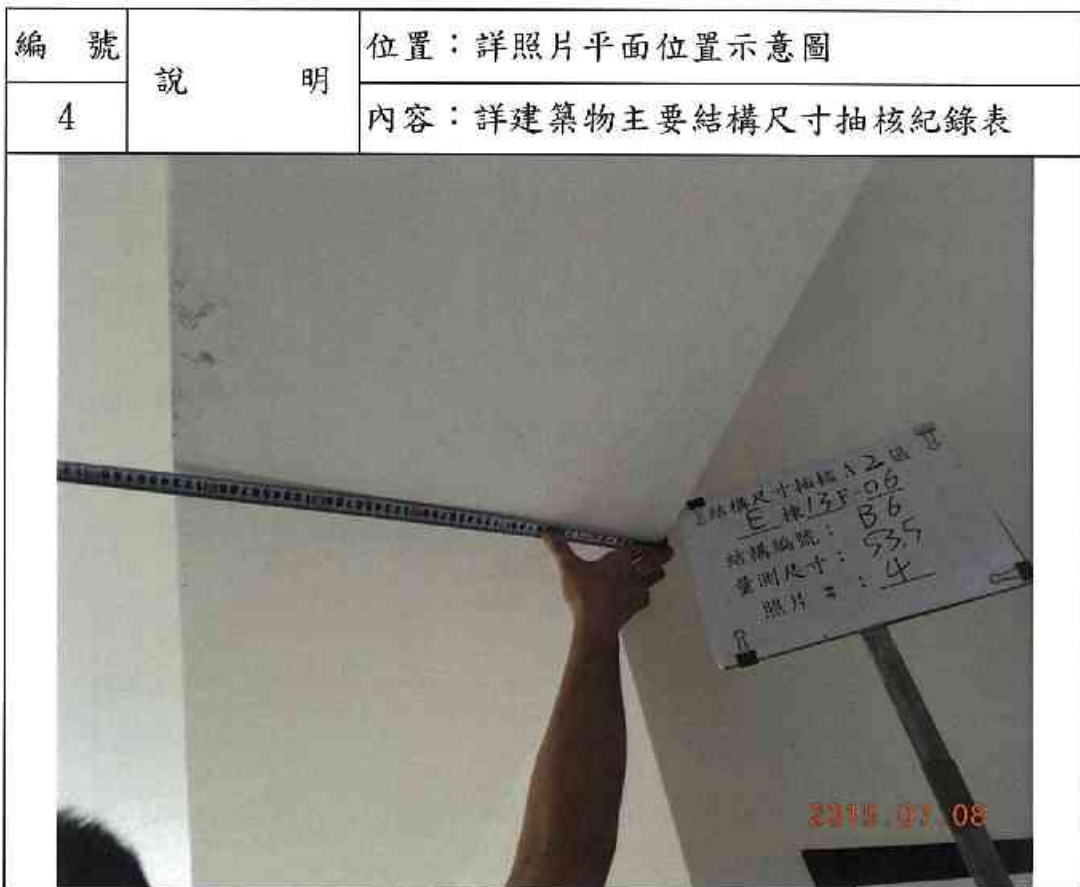 編 號
4
說 明
位置：詳照片平面位置示意圖
內容：詳建築物主要結構尺寸抽核紀錄表
結構尺寸抽核 A2區
E 棟 13F-06
結構編號： B6
量測尺寸： 53.5
照片 # ： 4